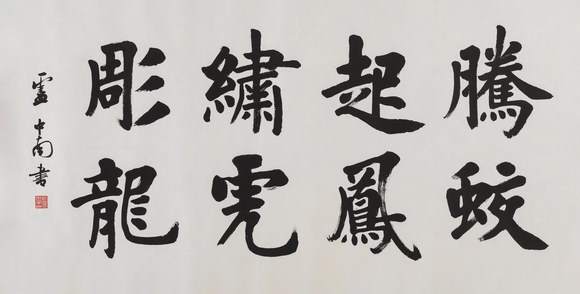 騰蛟
起鳳
繡虎
彫龍
盧中南書